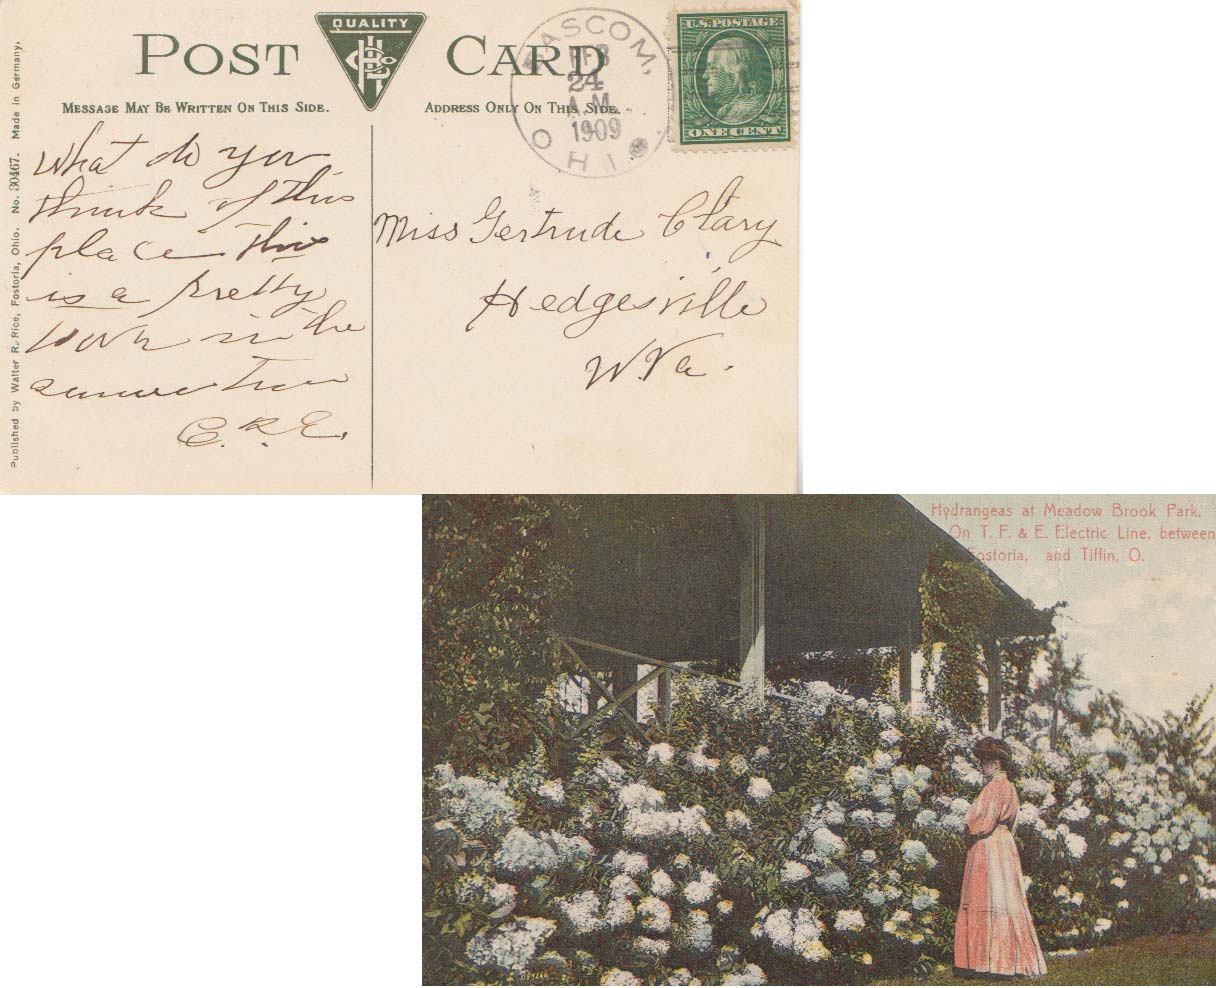 QUALITY
POST CARD
MESSAGE MAY BE WRITTEN ON THIS SIDE.
ADDRESS ONLY ON THIS SIDE.
BASCOM,
FEB
24
A.M.
1909
OHIO
U.S. POSTAGE
ONE CENT
Published by Walter R. Rice, Fostoria, Ohio. No. 30467. Made in Germany.
What do you
think of this
place this
is a pretty
in the
C. R. E.
Miss Gertrude Clary
Hedgesville
W. Va.
Hydrangeas at Meadow Brook Park.
On T. F. & E. Electric Line, between
Fostoria, and Tiffin, O.